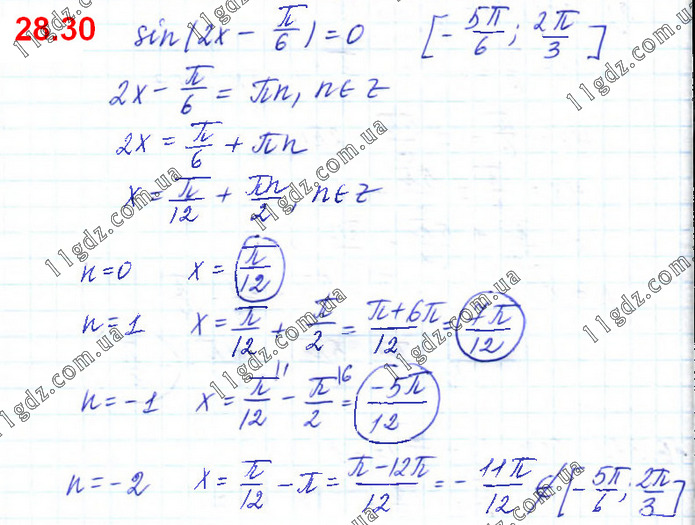 28.30 sin(2x - π/6) = 0 [-5π/6; 2π/3]
2x - π/6 = πn, n∈Z
2x = π/6 + πn
x = π/12 + πn/2, n∈Z
n=0 x = π/12
n=1 x = π/12 + π/2 = π+6π/12 = 7π/12
n=-1 x = π/12 - π/2 = -5π/12
n=-2 x = π/12 - π = π-12π/12 = -11π/12 ∉ [-5π/6; 2π/3]
11gdz.com.ua
11gdz.com.ua
11gdz.com.ua
11gdz.com.ua
11gdz.com.ua
11gdz.com.ua
11gdz.com.ua
11gdz.com.ua